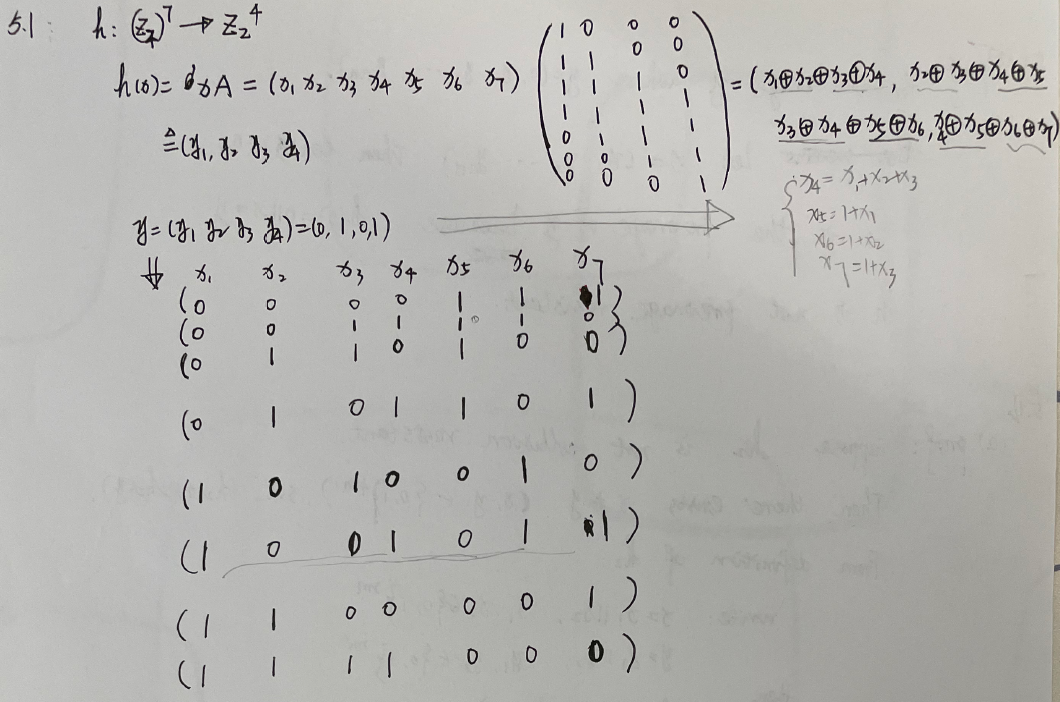 5.1: h: (Z_2)^7 → Z_2^4
h(x) = xA = (x_1 x_2 x_3 x_4 x_5 x_6 x_7) (1 0 0 0
1 1 0 0
1 1 1 0
1 1 1 1
0 1 1 1
0 0 1 1
0 0 0 1) = (x_1⊕x_2⊕x_3⊕x_4, x_2⊕x_3⊕x_4⊕x_5
x_3⊕x_4⊕x_5⊕x_6, x_4⊕x_5⊕x_6⊕x_7)
≜ (y_1, y_2 y_3 y_4)
x_4 = x_1+x_2+x_3
x_5 = 1+x_1
x_6 = 1+x_2
x_7 = 1+x_3
y = (y_1 y_2 y_3 y_4) = (0, 1, 0, 1)
⇓ x_1 x_2 x_3 x_4 x_5 x_6 x_7
(0 0 0 0 1 1 1)
(0 0 1 1 1 1 0)
(0 1 1 0 1 0 0)
(0 1 0 1 1 0 1)
(1 0 1 0 0 1 0)
(1 0 0 1 0 1 1)
(1 1 0 0 0 0 1)
(1 1 1 1 0 0 0)